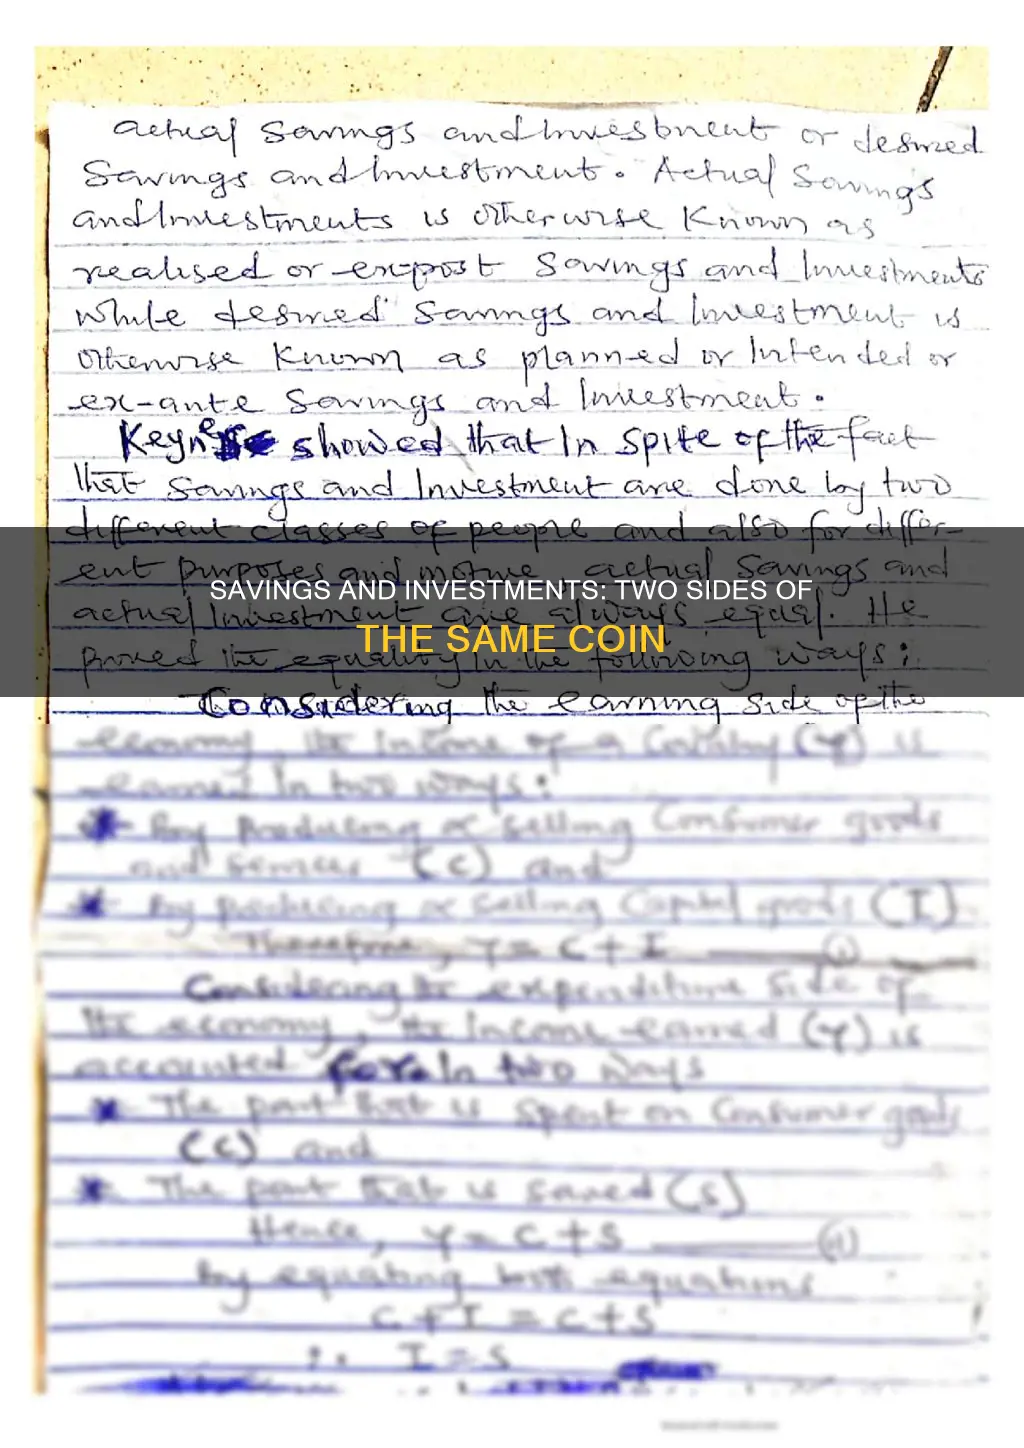 actual Savings and Investment or desired
Savings and Investment. Actual Savings
and Investments is otherwise Known as
realised or ex-post Savings and Investments
while desired Savings and Investment is
otherwise Known as planned or Intended or
ex-ante Savings and Investment.
Keynes showed that In spite of the fact
that Savings and Investment are done by two
different classes of people and also for differ-
ent purposes and motive, actual Savings and
SAVINGS AND INVESTMENTS: TWO SIDES OF
actual Investment are always equal. He
THE SAME COIN
proved the equality in the following ways:
Considering the earning side of the
economy, the Income of a Country (Y) is
earned In two ways:
* By producing or selling Consumer goods
and services (C) and
* By producing or selling Capital goods (I)
Therefore, Y = C + I
Considering the expenditure Side of
the economy, the Income earned (Y) is
accounted for In two ways
* The part that is spent on Consumer goods
(C) and
* The part that is saved (S)
Hence, Y = C + S (ii)
By equating both equations
C + I = C + S
∴ I = S